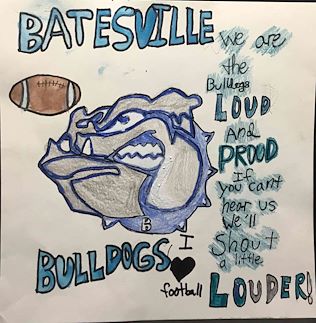 BATESVILLE
We are
the
Bulldogs
LOUD
And
PROUD
If
you cant
hear us
We'll
Shout
a little
LOUDER!
B
BULLDOGS
I
football